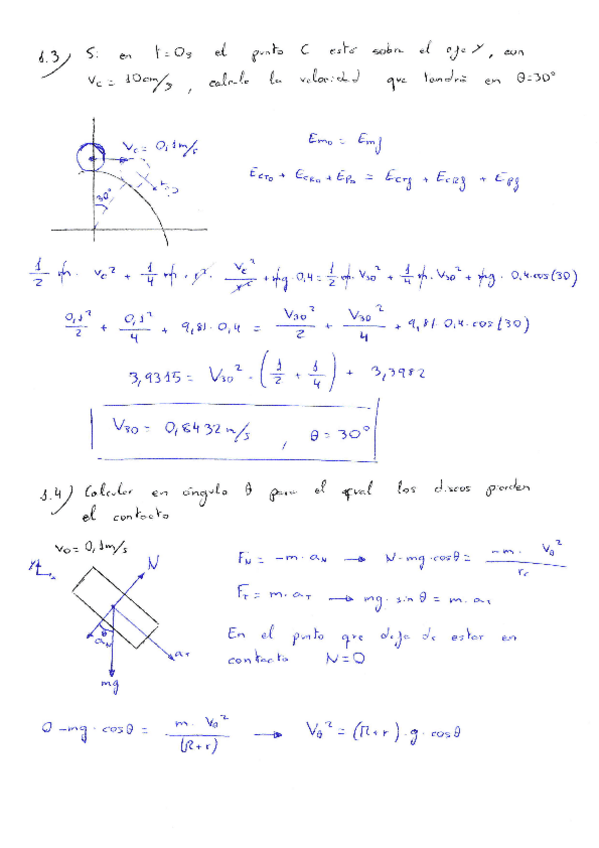 1.3) Si en t=0s el punto C está sobre el eje Y, con
Vc = 10cm/s, calcule la velocidad que tendrá en θ=30°
Vc = 0,1m/s
30°
Emo = Emf
EcTo + EcRo + Epo = EcTf + EcRf + Epf
1/2 m · Vc² + 1/4 m · r² · Vc²/r² + mg · 0,4 = 1/2 m · V30² + 1/4 m · V30² + mg · 0,4 · cos(30)
0,1²/2 + 0,1²/4 + 9,81 · 0,4 = V30²/2 + V30²/4 + 9,81 · 0,4 · cos(30)
3,9315 = V30² · (1/2 + 1/4) + 3,3982
V30 = 0,8432 m/s , θ = 30°
1.4) Calcular en ángulo θ para el cual los discos pierden
el contacto
V0 = 0,1m/s
Y
N
θ
aN
aT
mg
FN = -m · aN → N - mg · cosθ = -m · Vθ²/rc
FT = m · aT → mg · sinθ = m · aT
En el punto que deja de estar en
contacto N=0
0 - mg · cosθ = m · Vθ²/(R+r) → Vθ² = (R+r) · g · cosθ